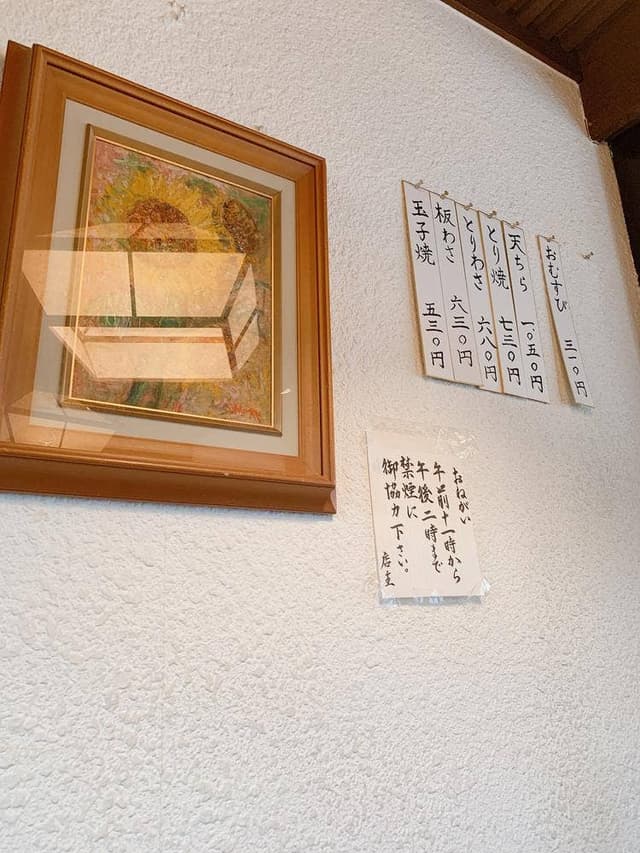 おむすび 三一〇円
天ちら 一、〇五〇円
とり焼 七三〇円
とりわさ 六八〇円
板わさ 六三〇円
玉子焼 五三〇円
おねがい
午前十一時から
午後二時まで
禁煙に
御協力下さい。
店主